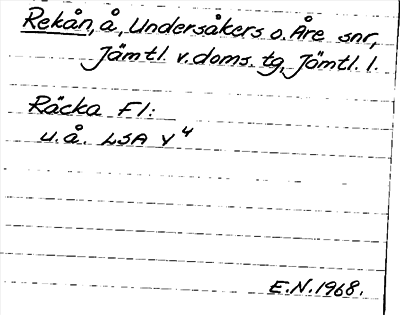 Rekån, å, Undersåkers o. Åre snr,
Jämtl. v. doms. tg, Jämtl. l.
Räcka Fl:
u. å. LSA V⁴
E.N. 1968.